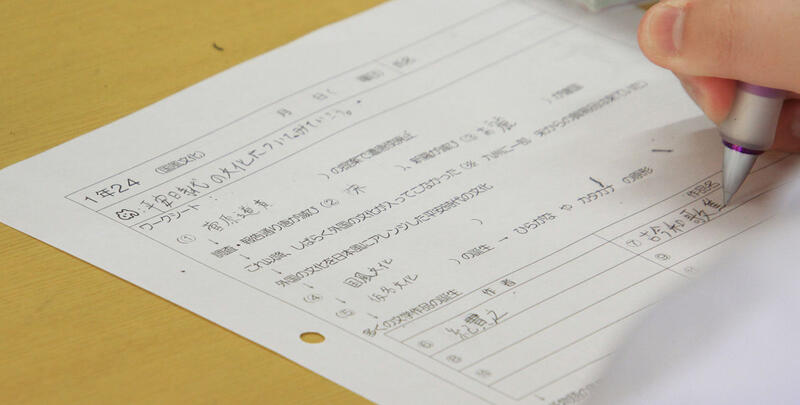 1年24 (国風文化) 月 日( 曜) 氏名
平安時代の文化についてみていこう。
ワークシート
① 菅原道真 )の提案で遣唐使廃止
調査・報告通り唐が滅び(② 宋 )、新羅が滅び(③ 高麗 )が建国
これ以降、しばらく外国の文化が入ってこなかった(※ 九州に一部
↓外国の文化を日本風にアレンジした平安時代の文化
④ 国風文化 )
⑤ 仮名文化 )の誕生 → ひらがな や カタカナ の原形
多くの文学作品の誕生
作者 作品名
⑥ 紀貫之 ⑦ 古今和歌集
⑧ ⑨
⑩ ⑪